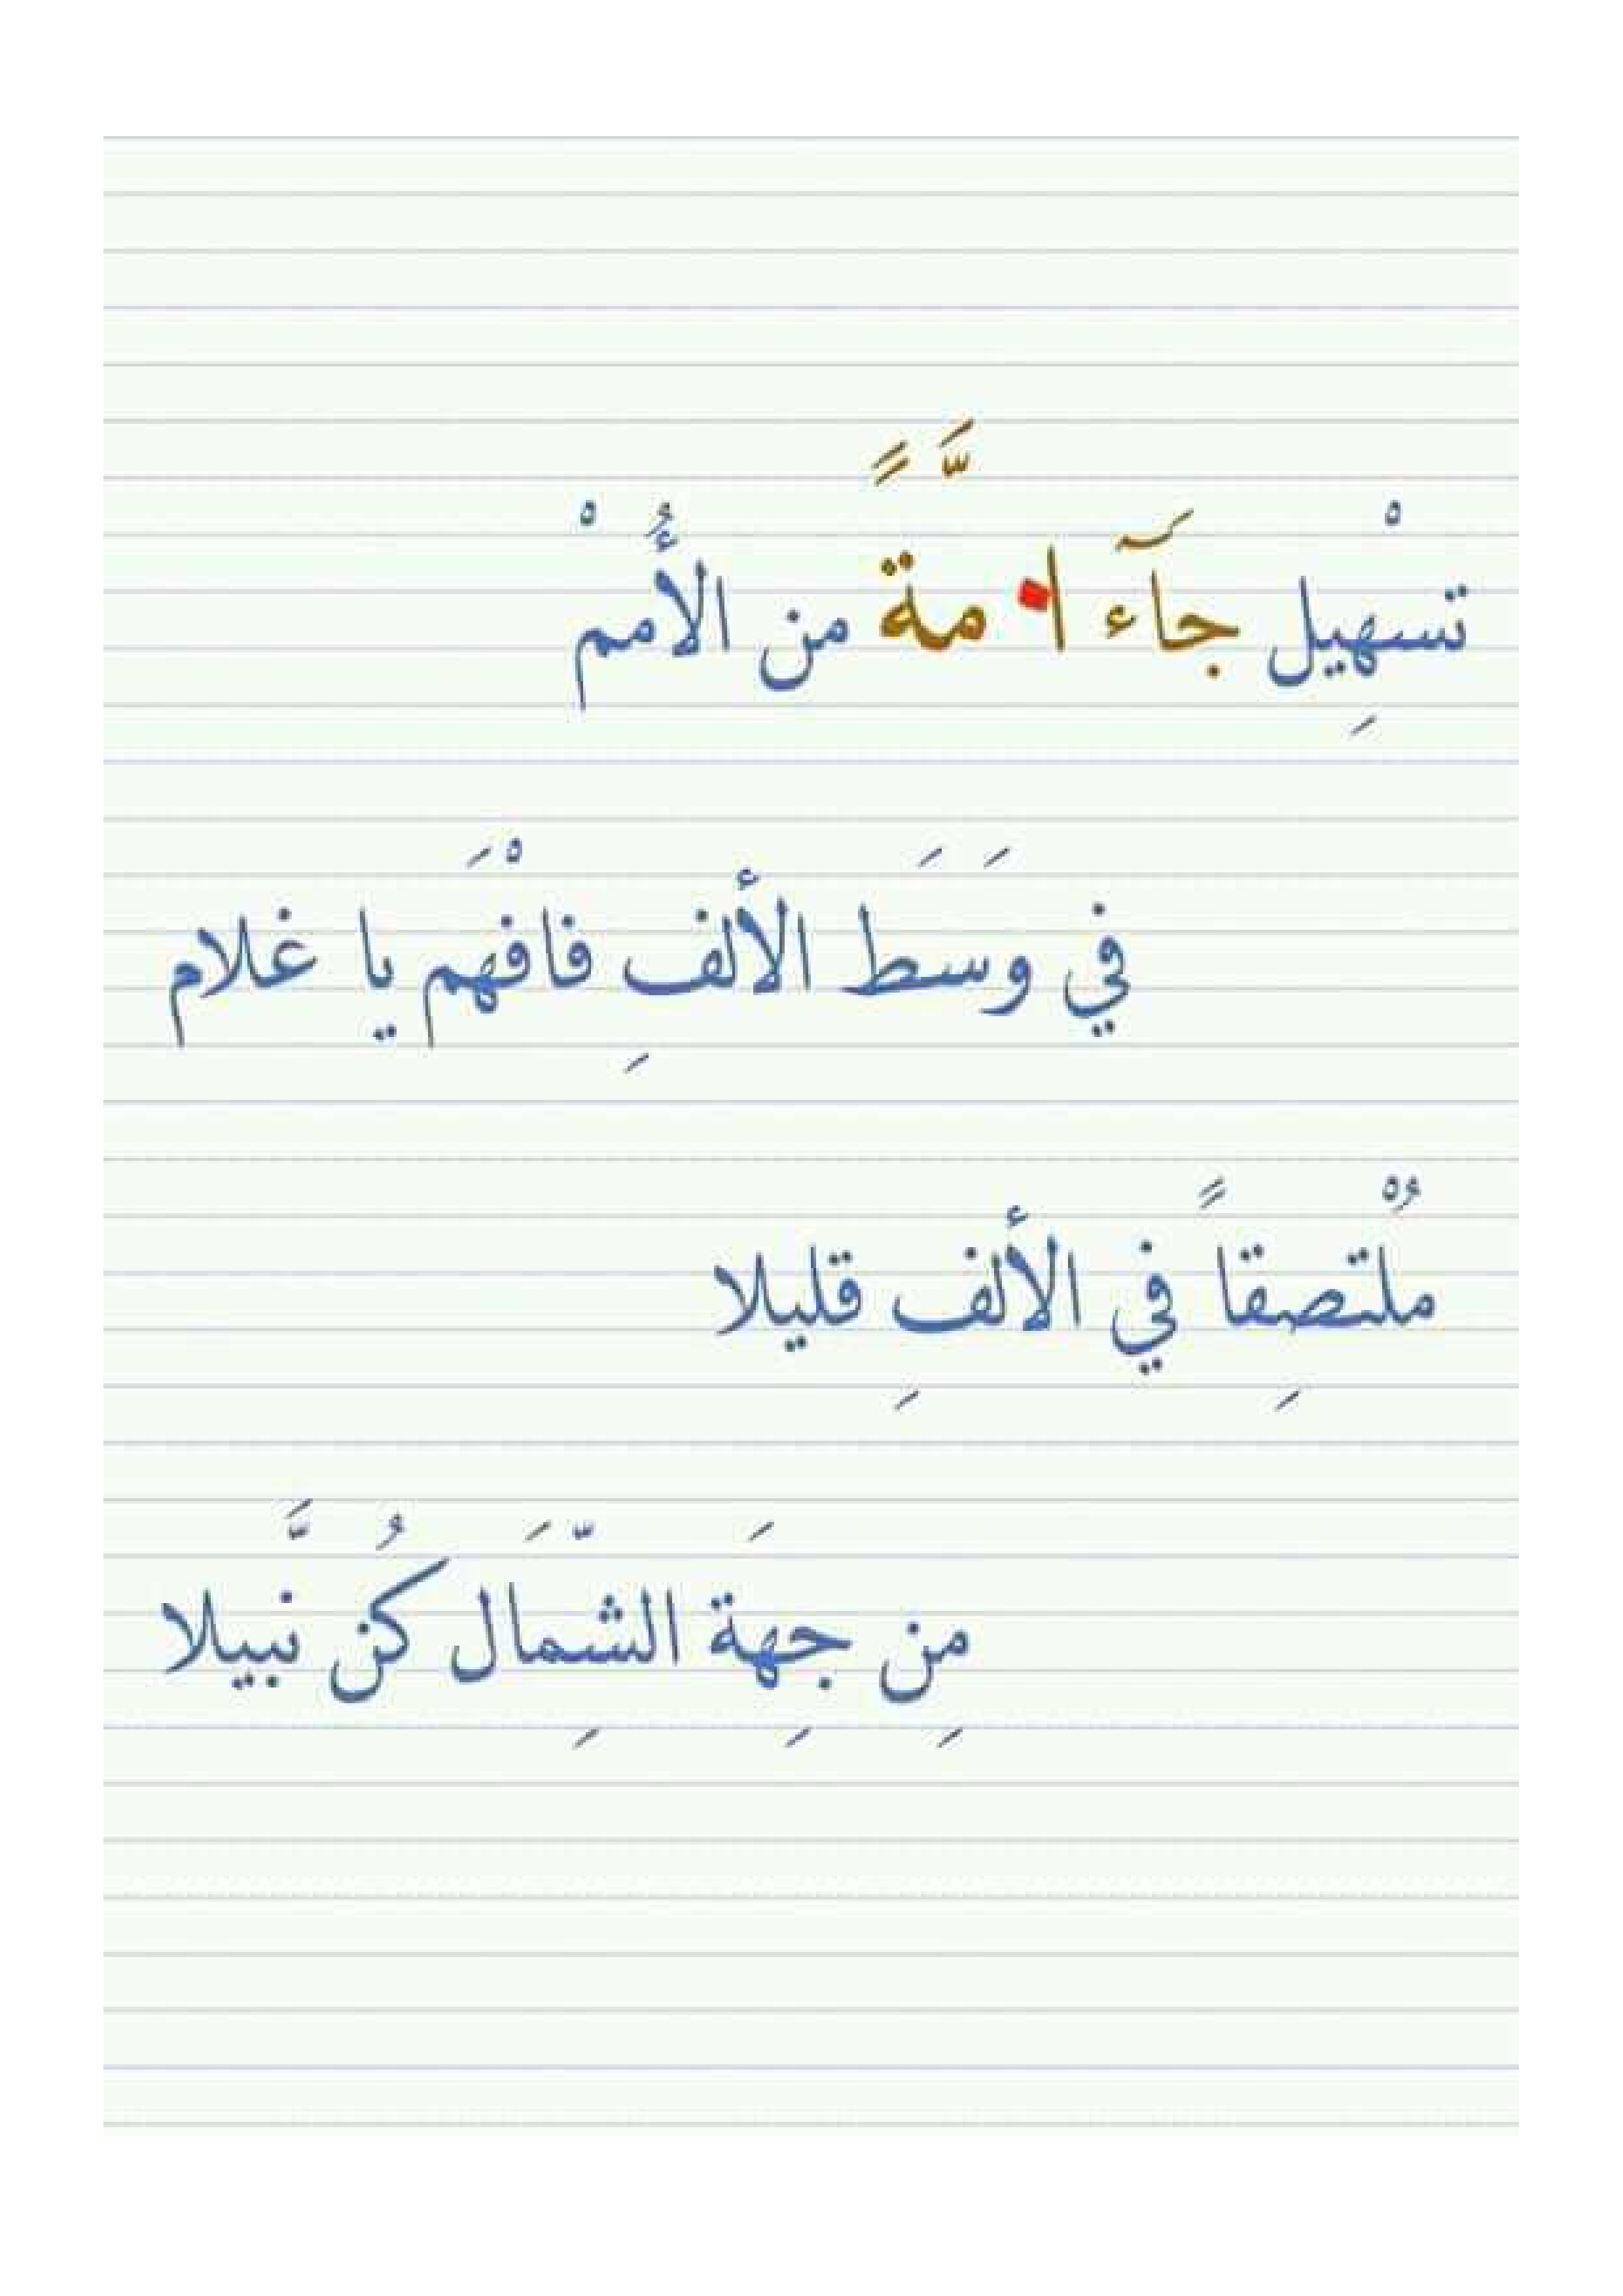 تسْهِيل جَآء ا•مَّةً من الأُممْ
في وَسَط الألفِ فافْهَم يا غلام
مُلْتصِقاً في الألفِ قليلا
مِن جِهَة الشِّمَال كُن نَّبيلا